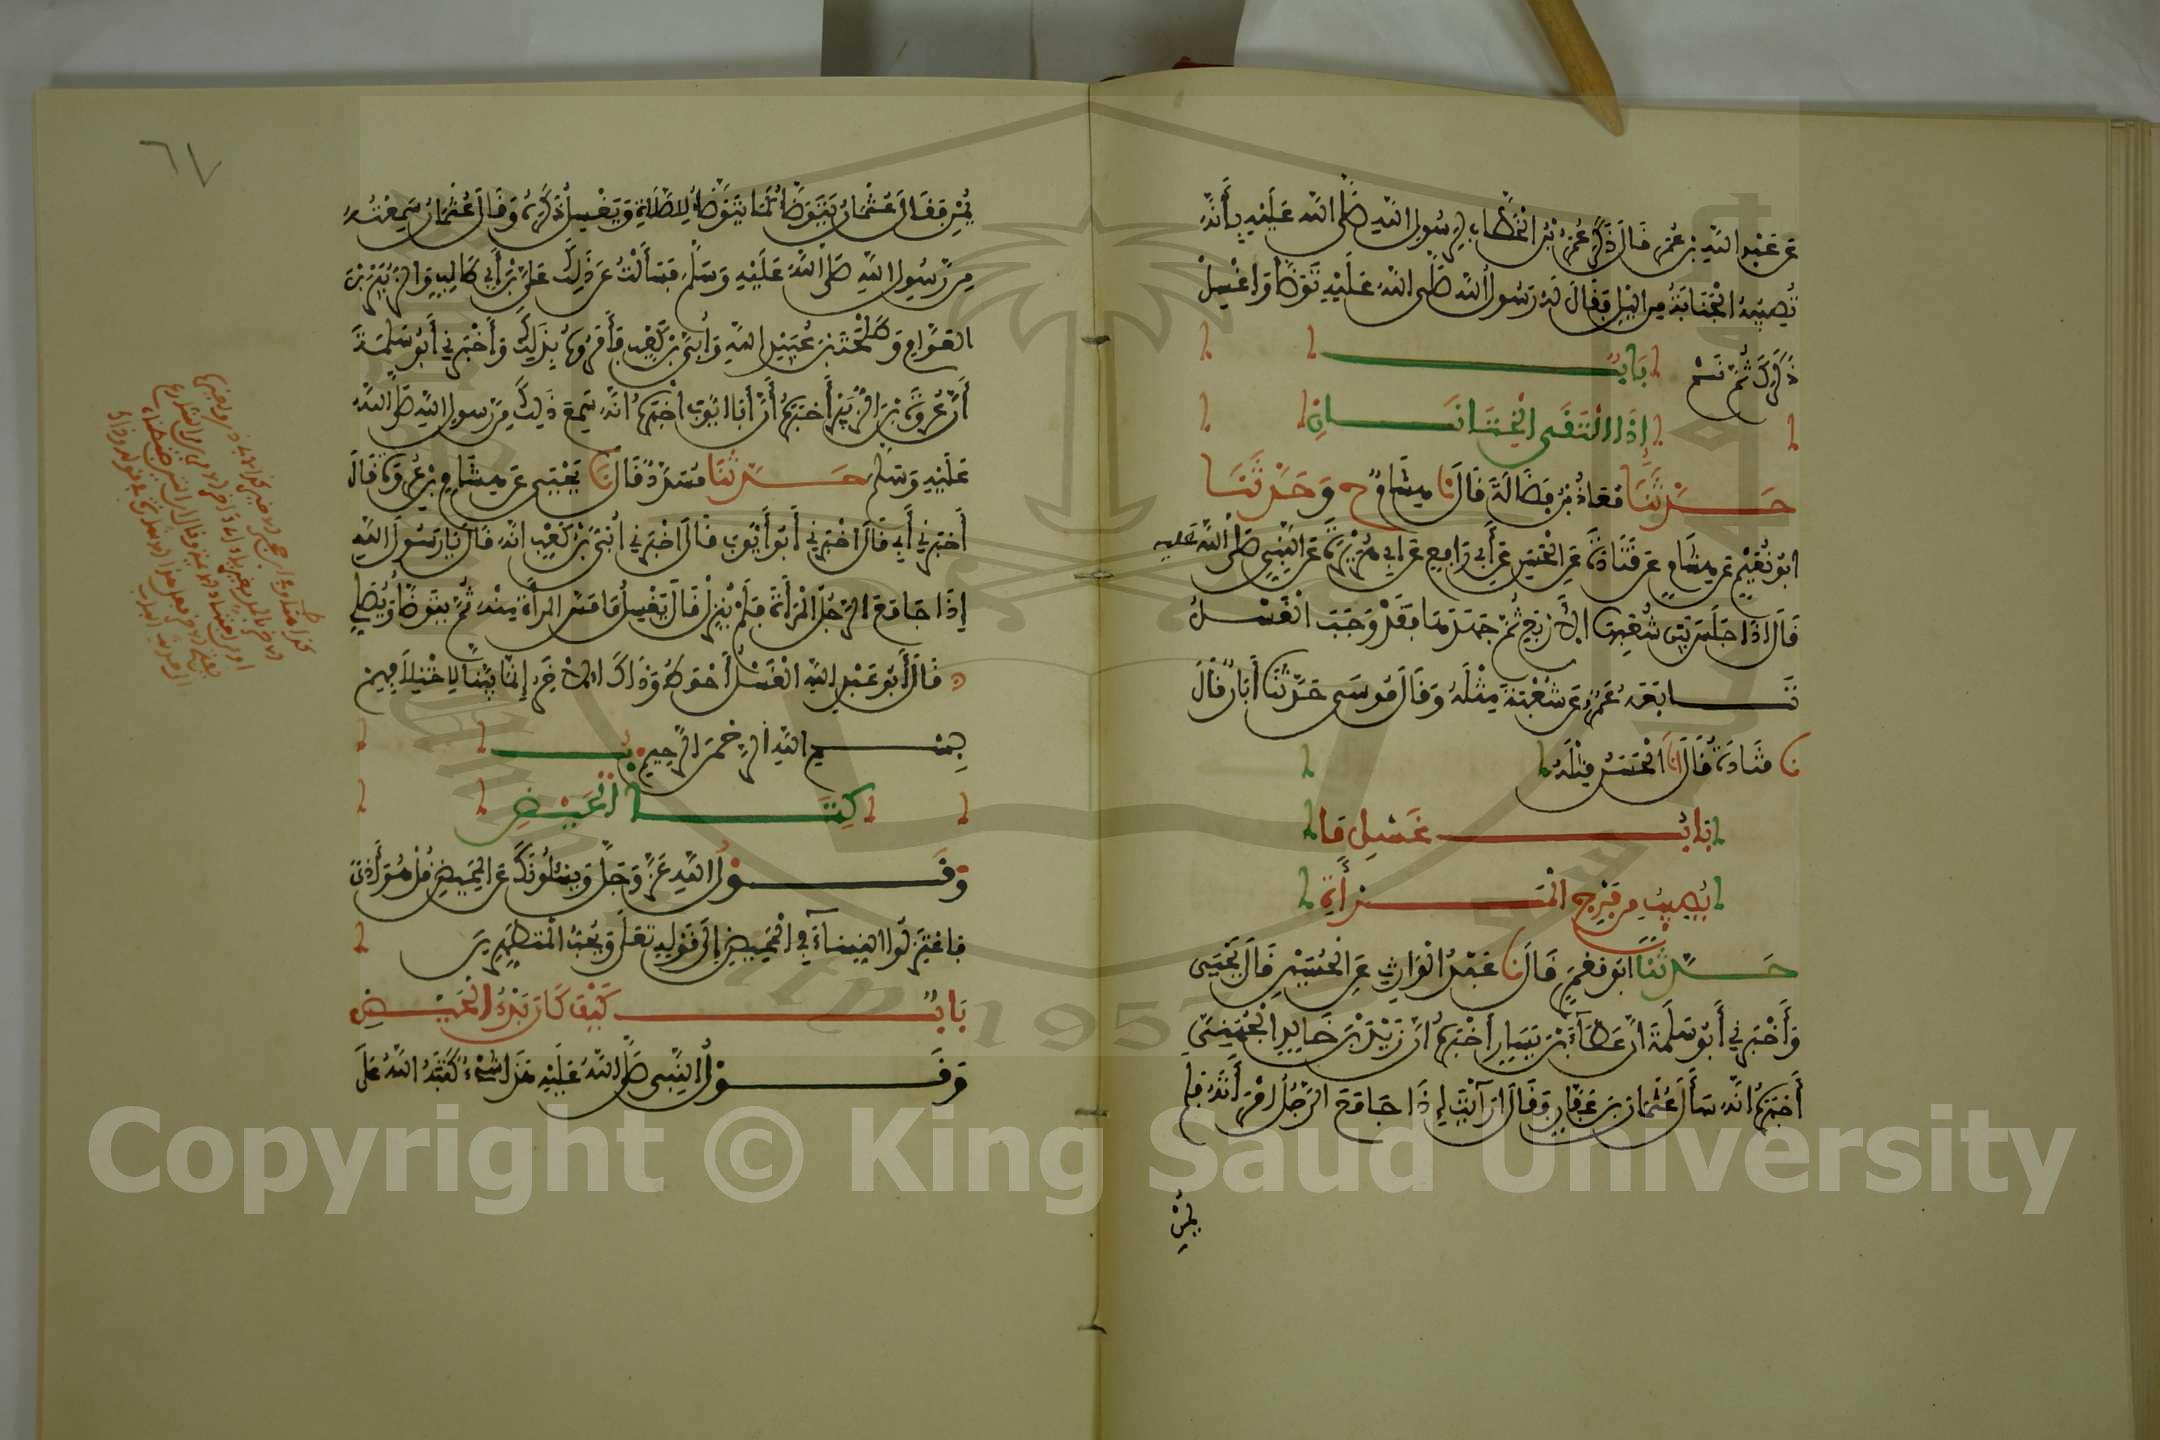 عن عبد الله بن عمر قال ذكر عمر بن الخطاب لرسول الله صلى الله عليه بأنه
تصيبه الجنابة من الليل فقال له رسول الله صلى الله عليه توضأ واغسل
ذكرك ثم نم باب
إذا التقى الختانان
حدثنا معاذ بن فضالة قال نا هشام ح وحدثنا
ابو نعيم عن هشام عن قتادة عن الحسن عن أبي رافع عن ابي هريرة عن النبي صلى الله عليه
قال اذا جلس بين شعبها الأربع ثم جهدها فقد وجب الغسل
تابعه عمرو عن شعبة مثله وقال موسى حدثنا أبان قال
نا قتادة قال انا الحسن مثله
باب غسل ما
يصيب من فرج المرأة
حدثنا ابو معمر قال نا عبد الوارث عن الحسين قال يحيى
وأخبرني أبو سلمة ان عطاء بن يسار أخبره ان زيد بن خالد الجهني
أخبره انه سأل عثمان بن عفان وقال ارأيت إذا جامع الرجل امرأته فلم
يمن
٦٧
يمن فقال عثمان يتوضأ كما يتوضأ للصلاة ويغسل ذكره وقال عثمان سمعته
من رسول الله صلى الله عليه وسلم فسألت عن ذلك علي بن أبي طالب والزبير بن
العوام وطلحة بن عبيد الله وأبي بن كعب فأمروه بذلك وأخبرني أبو سلمة
أن عروة بن الزبير أخبره أن أبا ايوب اخبره انه سمع ذلك من رسول الله صلى الله
عليه وسلم حدثنا مسدد قال نا يحيى عن هشام بن عروة قال
أخبرني أبي قال اخبرني أبو أيوب قال اخبرني أبي بن كعب انه قال يا رسول الله
إذا جامع الرجل المرأة فلم ينزل قال يغسل ما مس المرأة منه ثم يتوضأ ويصلي
قال أبو عبد الله الغسل أحوط وذاك الاخر إنما بينا لاختلافهم
بسم الله الرحمن الرحيم
كتاب الحيض
وقول الله عز وجل ويسئلونك عن المحيض قل هو أذى
فاعتزلوا النساء في المحيض إلى قوله تعلى ويحب المتطهرين
باب كيف كان بدء الحيض
وقول النبي صلى الله عليه هذا شيء كتبه الله على
Copyright © King Saud University
1957